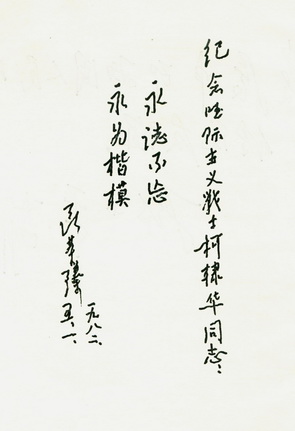 纪念国际主义战士柯棣华同志:
永誌不忘
永为楷模
一九八二、
五、一、